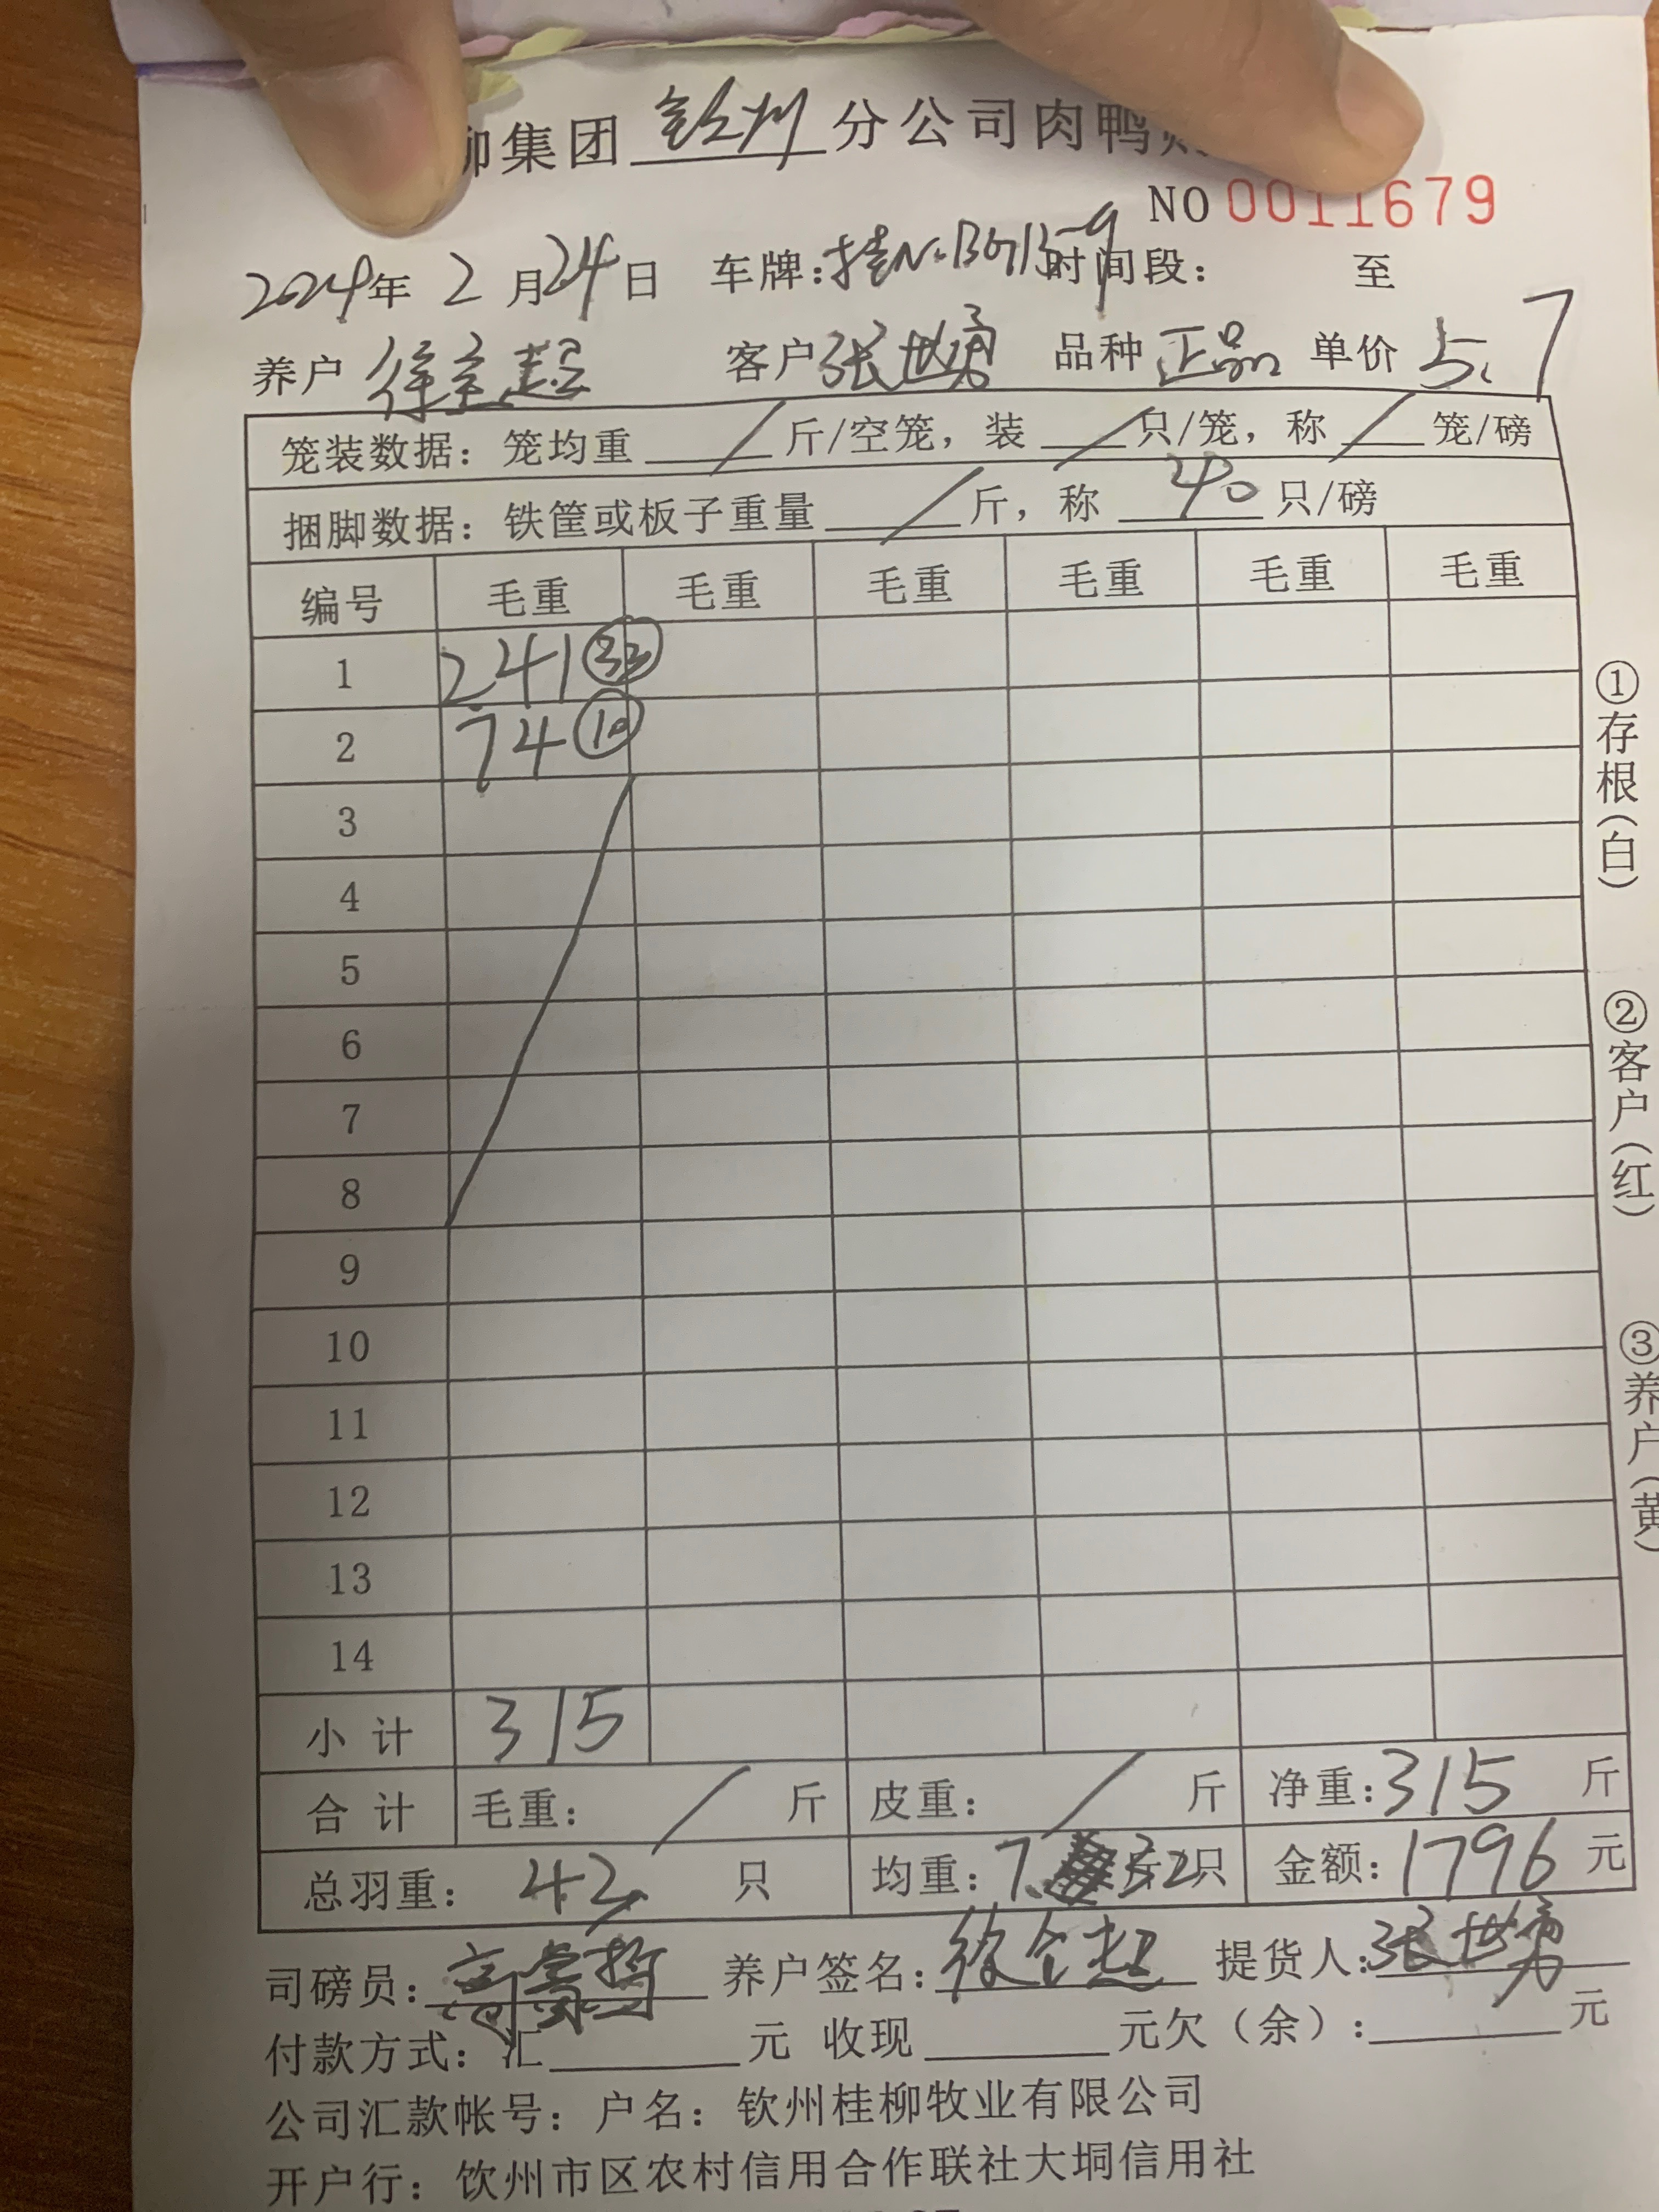 柳集团 钦州 分公司肉鸭
NO 0011679
2024年 2月24日 车牌: 时间段: 至
养户 客户 张世勇 品种 正品 单价 5.7
笼装数据: 笼均重 / 斤/空笼, 装 / 只/笼, 称 / 笼/磅
捆脚数据: 铁筐或板子重量 / 斤, 称 40 只/磅
编号 毛重 毛重 毛重 毛重 毛重 毛重
1 241 33
2 74 10
3
4
5
6
7
8
9
10
11
12
13
14
小计 315
合计 毛重: / 斤 皮重: / 斤 净重: 315 斤
总羽重: 42 只 均重: 7.32 斤/只 金额: 1796 元
司磅员: 养户签名: 提货人: 张世勇
付款方式: 汇 元 收现 元欠(余): 元
公司汇款帐号: 户名: 钦州桂柳牧业有限公司
开户行: 钦州市区农村信用合作联社大垌信用社
①存根(白)
②客户(红)
③养户(黄)